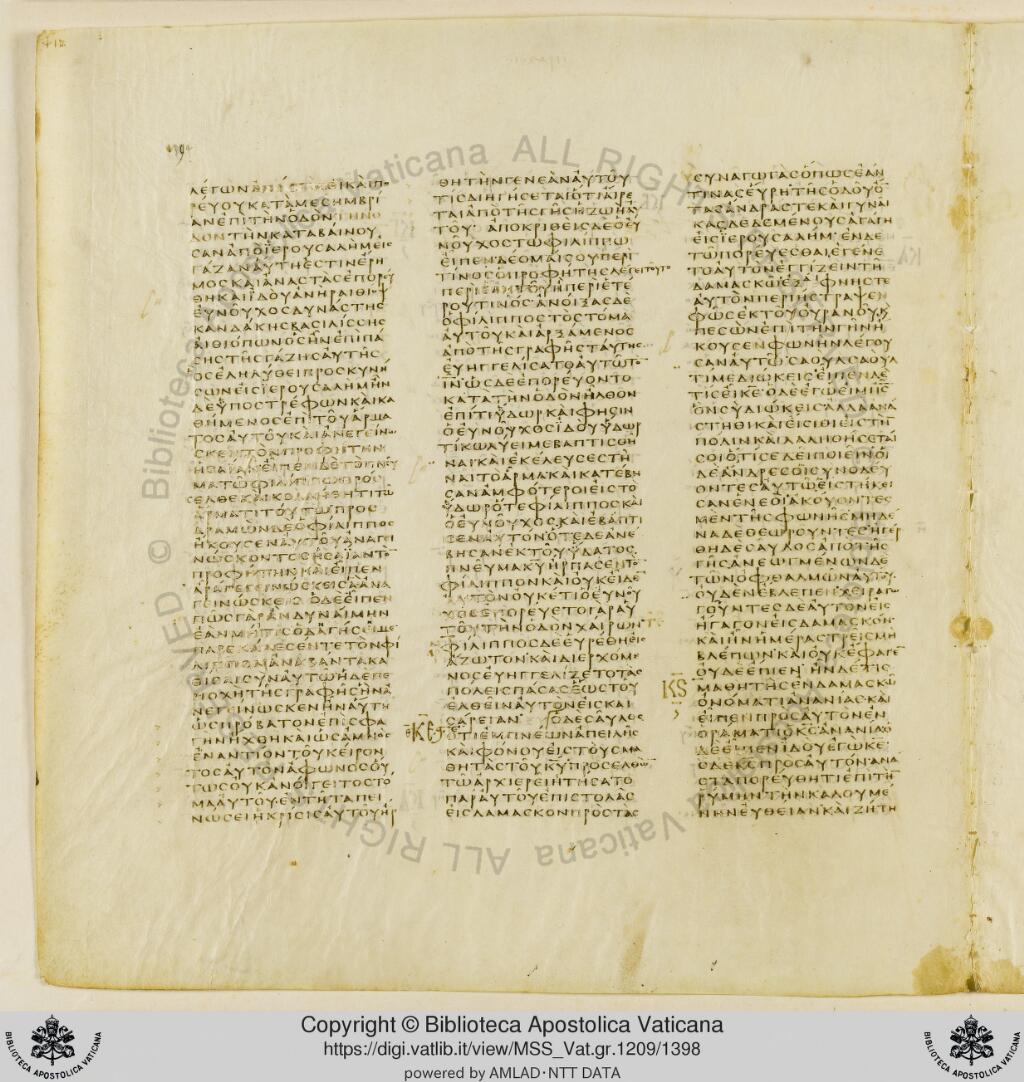 ΛΕΓΩΝΑΝΑΣΤΗΘΙΚΑΙΠΟ
ΡΕΥΟΥΚΑΤΑΜΕΣΗΜΒΡΙ
ΑΝΕΠΙΤΗΝΟΔΟΝΤΗΝΟ
ΔΟΝΤΗΝΚΑΤΑΒΑΙΝΟΥ
ΣΑΝΑΠΟΪΕΡΟΥΣΑΛΗΜΕΙΣ
ΓΑΖΑΝΑΥΤΗΕΣΤΙΝΕΡΗ
ΜΟΣΚΑΙΑΝΑΣΤΑΣΕΠΟΡΕΥ
ΘΗΚΑΙΪΔΟΥΑΝΗΡΑΙΘΙΟΨ
ΕΥΝΟΥΧΟΣΔΥΝΑΣΤΗΣ
ΚΑΝΔΑΚΗΣΒΑΣΙΛΙΣΣΗΣ
ΑΙΘΙΟΠΩΝΟΣΗΝΕΠΙΠΑ
ΣΗΣΤΗΣΓΑΖΗΣΑΥΤΗΣ
ΟΣΕΛΗΛΥΘΕΙΠΡΟΣΚΥΝΗ
ΣΩΝΕΙΣΪΕΡΟΥΣΑΛΗΜΗΝ
ΔΕΫΠΟΣΤΡΕΦΩΝΚΑΙΚΑ
ΘΗΜΕΝΟΣΕΠΙΤΟΥΑΡΜΑ
ΤΟΣΑΥΤΟΥΚΑΙΑΝΕΓΕΙΝΩ
ΣΚΕΝΤΟΝΠΡΟΦΗΤΗΝ
ΗΣΑΙΑΝΕΙΠΕΝΔΕΤΟΠΝΕΥ
ΜΑΤΩΦΙΛΙΠΠΩΠΡΟΣ
ΕΛΘΕΚΑΙΚΟΛΛΗΘΗΤΙΤΩ
ΑΡΜΑΤΙΤΟΥΤΩΠΡΟΣ
ΔΡΑΜΩΝΔΕΟΦΙΛΙΠΠΟΣ
ΗΚΟΥΣΕΝΑΥΤΟΥΑΝΑΓΕΙ
ΝΩΣΚΟΝΤΟΣΗΣΑΙΑΝΤΟΝ
ΠΡΟΦΗΤΗΝΚΑΙΕΙΠΕΝ
ΑΡΑΓΕΓΕΙΝΩΣΚΕΙΣΑΑΝΑ
ΓΕΙΝΩΣΚΕΙΣΟΔΕΕΙΠΕΝ
ΠΩΣΓΑΡΑΝΔΥΝΑΙΜΗΝ
ΕΑΝΜΗΤΙΣΟΔΑΓΗΣΕΙΜΕ
ΠΑΡΕΚΑΛΕΣΕΝΤΕΤΟΝΦΙ
ΛΙΠΠΟΝΑΝΑΒΑΝΤΑΚΑ
ΘΙΣΑΙΣΥΝΑΥΤΩΗΔΕΠΕ
ΡΙΟΧΗΤΗΣΓΡΑΦΗΣΗΝΑ
ΝΕΓΕΙΝΩΣΚΕΝΗΝΑΥΤΗ
ΩΣΠΡΟΒΑΤΟΝΕΠΙΣΦΑ
ΓΗΝΗΧΘΗΚΑΙΩΣΑΜΝΟΣ
ΕΝΑΝΤΙΟΝΤΟΥΚΕΙΡΟΝ
ΤΟΣΑΥΤΟΝΑΦΩΝΟΣΟΥ
ΤΩΣΟΥΚΑΝΟΙΓΕΙΤΟΣΤΟ
ΜΑΑΥΤΟΥΕΝΤΗΤΑΠΕΙ
ΝΩΣΕΙΗΚΡΙΣΙΣΑΥΤΟΥΗΡ
ΘΗΤΗΝΓΕΝΕΑΝΑΥΤΟΥ
ΤΙΣΔΙΗΓΗΣΕΤΑΙΟΤΙΑΙΡΕ
ΤΑΙΑΠΟΤΗΣΓΗΣΗΖΩΗΑΥ
ΤΟΥ ΑΠΟΚΡΙΘΕΙΣΔΕΟΕΥ
ΝΟΥΧΟΣΤΩΦΙΛΙΠΠΩ
ΕΙΠΕΝΔΕΟΜΑΙΣΟΥΠΕΡΙ
ΤΙΝΟΣΟΠΡΟΦΗΤΗΣΛΕΓΕΙΤΟΥΤΟ
ΠΕΡΙΕΑΥΤΟΥΗΠΕΡΙΕΤΕ
ΡΟΥΤΙΝΟΣΑΝΟΙΞΑΣΔΕ
ΟΦΙΛΙΠΠΟΣΤΟΣΤΟΜΑ
ΑΥΤΟΥΚΑΙΑΡΞΑΜΕΝΟΣ
ΑΠΟΤΗΣΓΡΑΦΗΣΤΑΥΤΗΣ
ΕΥΗΓΓΕΛΙΣΑΤΟΑΥΤΩΤΟΝ
ΙΝΩΣΔΕΕΠΟΡΕΥΟΝΤΟ
ΚΑΤΑΤΗΝΟΔΟΝΗΛΘΟΝ
ΕΠΙΤΙΥΔΩΡΚΑΙΦΗΣΙΝ
ΟΕΥΝΟΥΧΟΣΪΔΟΥΥΔΩΡ
ΤΙΚΩΛΥΕΙΜΕΒΑΠΤΙΣΘΗ
ΝΑΙΚΑΙΕΚΕΛΕΥΣΕΣΤΗ
ΝΑΙΤΟΑΡΜΑΚΑΙΚΑΤΕΒΗ
ΣΑΝΑΜΦΟΤΕΡΟΙΕΙΣΤΟ
ΥΔΩΡΟΤΕΦΙΛΙΠΠΟΣΚΑΙ
ΟΕΥΝΟΥΧΟΣΚΑΙΕΒΑΠΤΙ
ΣΕΝΑΥΤΟΝΟΤΕΔΕΑΝΕ
ΒΗΣΑΝΕΚΤΟΥΥΔΑΤΟΣ
ΠΝΕΥΜΑΚΥΗΡΠΑΣΕΝΤΟΝ
ΦΙΛΙΠΠΟΝΚΑΙΟΥΚΕΙΔΕ
ΑΥΤΟΝΟΥΚΕΤΙΟΕΥΝΟΥ
ΧΟΣΕΠΟΡΕΥΕΤΟΓΑΡΑΥ
ΤΟΥΤΗΝΟΔΟΝΧΑΙΡΩΝ
ΦΙΛΙΠΠΟΣΔΕΕΥΡΕΘΗΕΙΣ
ΑΖΩΤΟΝΚΑΙΔΙΕΡΧΟΜΕ
ΝΟΣΕΥΗΓΓΕΛΙΖΕΤΟΤΑΣ
ΠΟΛΕΙΣΠΑΣΑΣΕΩΣΤΟΥ
ΕΛΘΕΙΝΑΥΤΟΝΕΙΣΚΑΙ
ΣΑΡΕΙΑΝ ΟΔΕΣΑΥΛΟΣ
ΕΤΙΕΜΠΝΕΩΝΑΠΕΙΛΗΣ
ΚΑΙΦΟΝΟΥΕΙΣΤΟΥΣΜΑ
ΘΗΤΑΣΤΟΥΚΥΠΡΟΣΕΛΘΩΝ
ΤΩΑΡΧΙΕΡΕΙΗΤΗΣΑΤΟ
ΠΑΡΑΥΤΟΥΕΠΙΣΤΟΛΑΣ
ΕΙΣΔΑΜΑΣΚΟΝΠΡΟΣΤΑΣ
ΣΥΝΑΓΩΓΑΣΟΠΩΣΕΑΝ
ΤΙΝΑΣΕΥΡΗΤΗΣΟΔΟΥΟΝ
ΤΑΣΑΝΔΡΑΣΤΕΚΑΙΓΥΝΑΙ
ΚΑΣΔΕΔΕΜΕΝΟΥΣΑΓΑΓΗ
ΕΙΣΪΕΡΟΥΣΑΛΗΜ ΕΝΔΕ
ΤΩΠΟΡΕΥΕΣΘΑΙΕΓΕΝΕ
ΤΟΑΥΤΟΝΕΓΓΙΖΕΙΝΤΗ
ΔΑΜΑΣΚΩΕΞΑΙΦΝΗΣΤΕ
ΑΥΤΟΝΠΕΡΙΗΣΤΡΑΨΕΝ
ΦΩΣΕΚΤΟΥΟΥΡΑΝΟΥΚΑΙ
ΠΕΣΩΝΕΠΙΤΗΝΓΗΝΗ
ΚΟΥΣΕΝΦΩΝΗΝΛΕΓΟΥ
ΣΑΝΑΥΤΩΣΑΟΥΛΣΑΟΥΛ
ΤΙΜΕΔΙΩΚΕΙΣΕΙΠΕΝΔΕ
ΤΙΣΕΙΚΕΟΔΕΕΓΩΕΙΜΙΙΣ
ΟΝΣΥΔΙΩΚΕΙΣΑΛΛΑΑΝΑ
ΣΤΗΘΙΚΑΙΕΙΣΙΘΙΕΙΣΤΗ
ΠΟΛΙΝΚΑΙΛΑΛΗΘΗΣΕΤΑΙ
ΣΟΙΟΤΙΣΕΔΕΙΠΟΙΕΙΝΟΙ
ΔΕΑΝΔΡΕΣΟΙΣΥΝΟΔΕΥ
ΟΝΤΕΣΑΥΤΩΕΙΣΤΗΚΕΙ
ΣΑΝΕΝΕΟΙΑΚΟΥΟΝΤΕΣ
ΜΕΝΤΗΣΦΩΝΗΣΜΗΔΕ
ΝΑΔΕΘΕΩΡΟΥΝΤΕΣΗΓΕΡ
ΘΗΔΕΣΑΥΛΟΣΑΠΟΤΗΣ
ΓΗΣΑΝΕΩΓΜΕΝΩΝΔΕ
ΤΩΝΟΦΘΑΛΜΩΝΑΥΤΟΥ
ΟΥΔΕΝΕΒΛΕΠΕΝΧΕΙΡΑΓΩ
ΓΟΥΝΤΕΣΔΕΑΥΤΟΝΕΙΣ
ΗΓΑΓΟΝΕΙΣΔΑΜΑΣΚΟΝ
ΚΑΙΗΝΗΜΕΡΑΣΤΡΕΙΣΜΗ
ΒΛΕΠΩΝΚΑΙΟΥΚΕΦΑΓΕ
ΟΥΔΕΕΠΙΕΝ ΗΝΔΕΤΙΣ
ΜΑΘΗΤΗΣΕΝΔΑΜΑΣΚΩ
ΟΝΟΜΑΤΙΑΝΑΝΙΑΣΚΑΙ
ΕΙΠΕΝΠΡΟΣΑΥΤΟΝΕΝ
ΟΡΑΜΑΤΙΟΚΣΑΝΑΝΙΑΟ
ΔΕΕΙΠΕΝΙΔΟΥΕΓΩΚΕ
ΟΔΕΚΣΠΡΟΣΑΥΤΟΝΑΝΑ
ΣΤΑΠΟΡΕΥΘΗΤΙΕΠΙΤΗΝ
ΡΥΜΗΝΤΗΝΚΑΛΟΥΜΕ
ΝΗΝΕΥΘΕΙΑΝΚΑΙΖΗΤΗ
Copyright © Biblioteca Apostolica Vaticana
https://digi.vatlib.it/view/MSS_Vat.gr.1209/1398
powered by AMLAD·NTT DATA